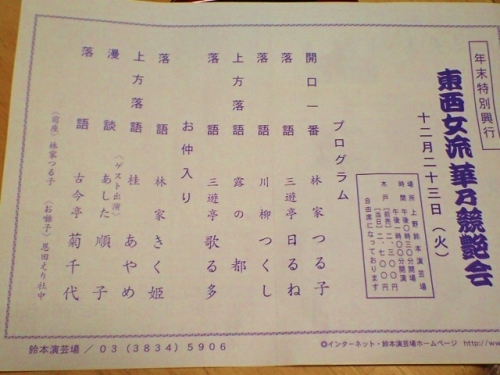 年末特別興行
東西女流華乃競艶会
十二月二十三日（火）
場所 上野鈴本演芸場
時間 午後〇時三〇分開場
午後一時〇〇分開演
木戸 【前売】二、三〇〇円
【当日】二、七〇〇円
自由席になっております
プログラム
開口一番 林家つる子
落語 三遊亭日るね
落語 川柳つくし
上方落語 露の都
落語 三遊亭歌る多
お仲入り
落語 林家きく姫
上方落語 桂あやめ
（ゲスト出演）
漫談 あした順子
落語 古今亭菊千代
（前座）林家つる子 （お囃子）恩田えり社中
鈴本演芸場／０３（３８３４）５９０６
©インターネット・鈴本演芸場ホームページ http://ww